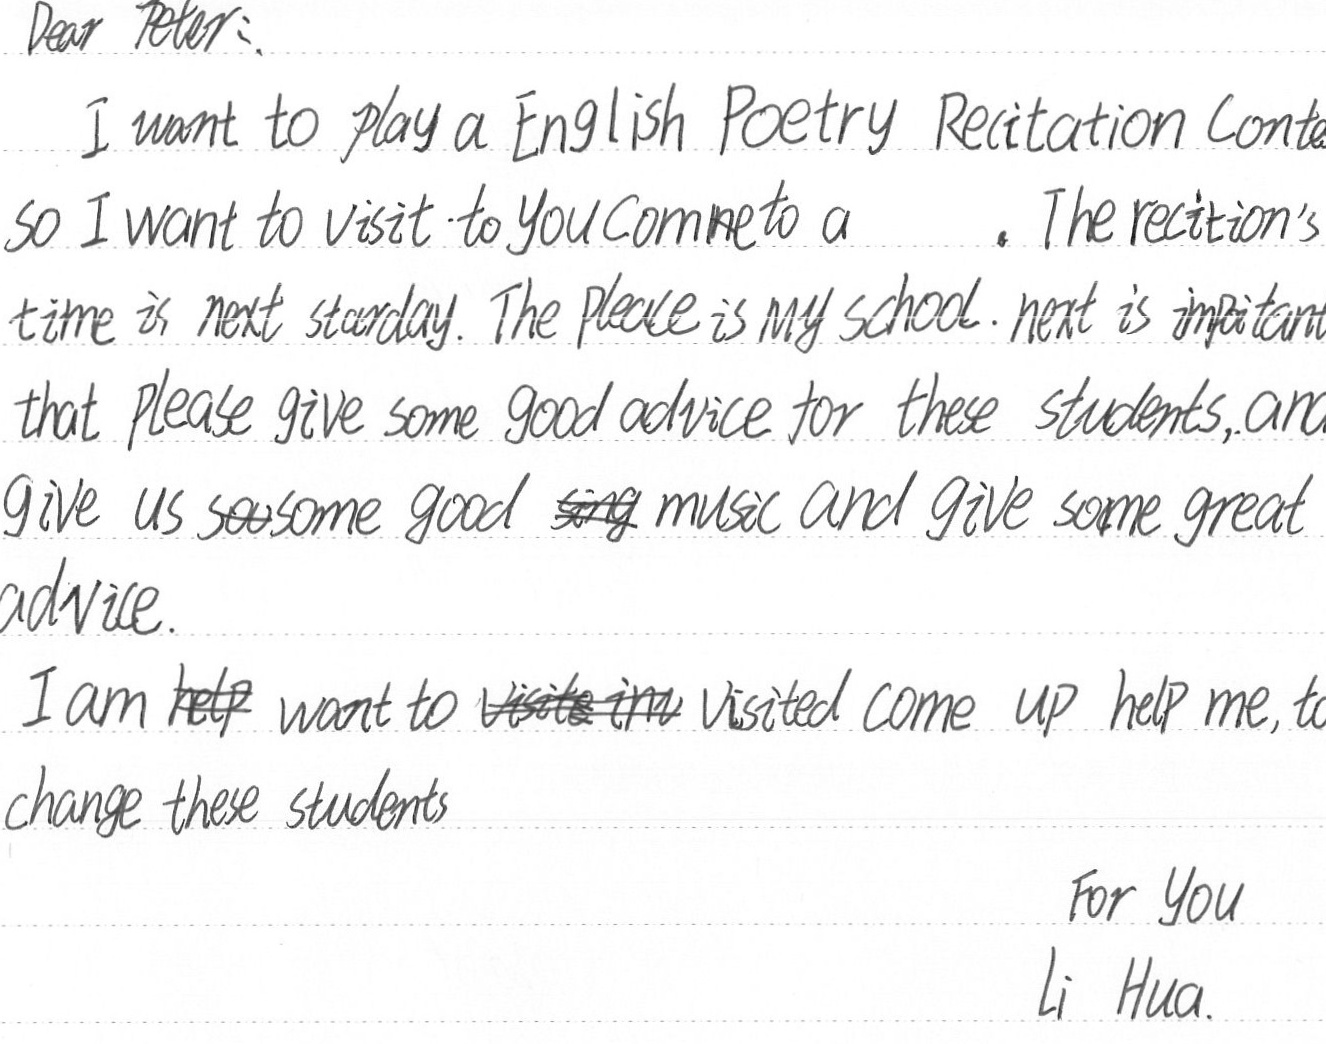 Dear Peter:
I want to play a English Poetry Recitation Conte
so I want to visit to you Comne to a . The recition's
time is next starday. The pleace is my school. next is impoitant
that please give some good advice for these students, and
give us some good music and give some great
advice.
I am want to visited come up help me, to
change these students
For You
Li Hua.